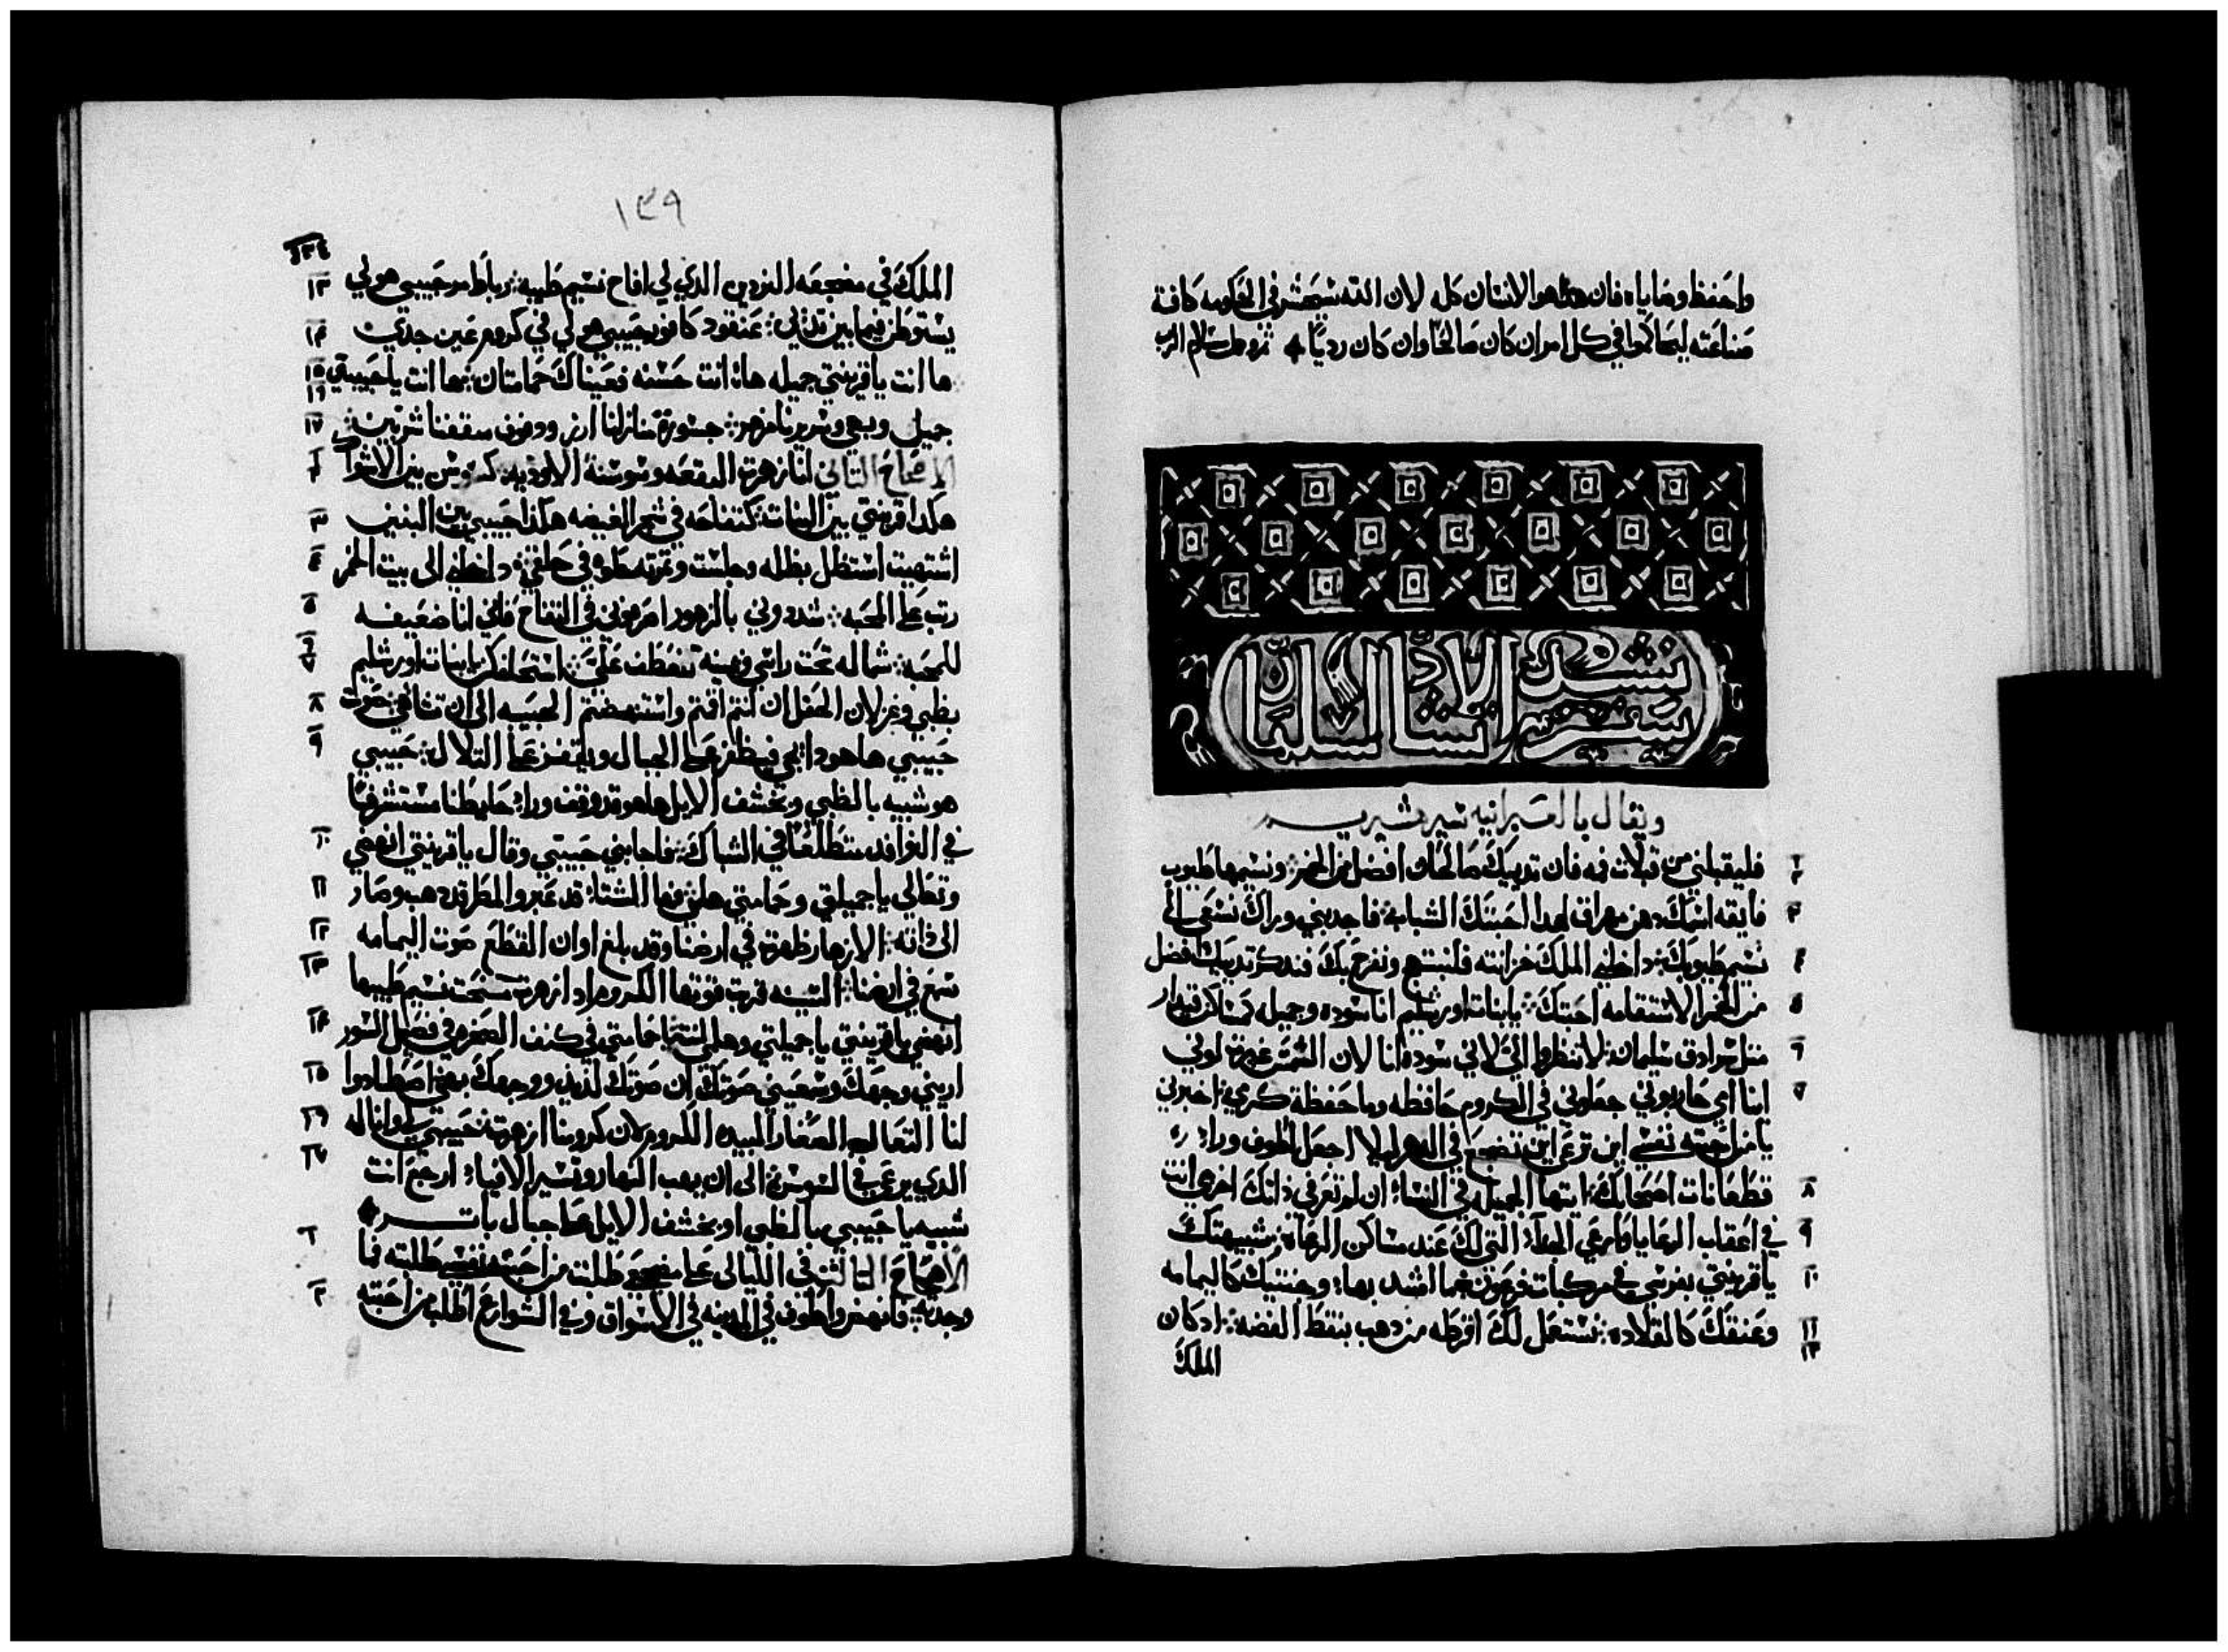 واحفظ وصاياه فان هذا هو الانسان كله لان الله سيحضر في الحكومه كافة
صناعته ليحاكموا في كل امر ان كان صالحًا وان كان رديًا
نشيد الانشاد
سليمان
ويقال بالعبرانيه شير هشيريم
٢ فليقبلني من قبلات فمه فان تدييك صالحان افضل من الخمر ونسيمها طيوب
٣ فايقه اسمك دهن مهراق لهدا احبتك الشبابة فاجدبني وراك نسعى الى
٤ نسيم طيوبك ادخلني الملك خزانته فلنبتهج ونفرح بك فندكر تدييك افضل
٥ من الخمر الاستقامه احبتك يا بنات اورشليم انا سوده وجميله كمساكن قيدار
٦ متل سرادق سليمان لا تنظروا الي لاني سوده انا لان الشمس غيرت لوني
٧ ابنا امي حاربوني جعلوني في الكروم حافظه وما حفظة كرمي اخبرني
يا من احبته نفسي اين ترعى اين تضجع في الظهر ليلا اجعل اطوف ورا
٨ قطعانات اصحابك ايتها الجميله في النسا ان لم تعرفي ذاتك اخرجي انت
٩ في اعقاب الرعايا وارعي الجدآ التي لك عند مساكن الرعاة شبيهتك
١٠ يا قرينتي بفرسي في مركبات فرعون ما اشد بها وجنتيك كاليمامه
١١ وعنقك كالقلاده نستعمل لك اقرطه من دهب بنقط الفضه اد كان
١٢
الملك
١٣٩
١٣٤
١٣ الملك في مضجعه النردين الدي لي افاح نسيم طيبه رباط مر حبيبي هو لي
١٤ يستوطن فيما بين تديي عنقود كافور حبيبي هو لي في كروم عين جدي
١٥ ها انت يا قرينتي جميله ها انت حسنه فعيناك حمامتان ها انت يا حبيبي
١٦
١٧ جميل وبهي وسريرنا مزهر جسورة منازلنا ارز ودفوف سقفنا شربين
الاصحاح التاني انا زهرة البقعه وسوسنة الاوديه كسوسن بين الاشواك
٣ هكدا قرينتي بين البنات كتفاحه في شجر الغيضه هكذا حبيبي بين البنين
٤ اشتهيت استظل بظله وجلست وتمرته حلوه في حلقي ادخلني الى بيت الخمر
٥ رتب علي المحبه شددوني بالزهور اصرعوني في التفاح فاني انا ضعيفه
٦ للمحبه شماله تحت راسي ويمينه تنعطف علي استحلفكن يا بنات اورشليم
٧
٨ بظبي وغزلان الحقل ان انتم اقمتم واستنهضتم الحبيبه الى ان تشا هي صوت
٩ حبيبي ها هو دا يجي فيطفز على الجبال ويقفز على التلال حبيبي
هو شبيه بالظبي وبخشف الايل ها هو قد وقف ورا حايطنا مستشرفًا
١٠ في النوافد متطلعًا في الشباك فاجابني حبيبي وقال يا قرينتي انهضي
١١ وتعالي يا جميلتي وحمامتي هلمي فها الشتا قد عبر والمطر قد دهب وصار
١٢ الى داته الازهار ظهرت في ارضنا وقد بلغ اوان القطع صوت اليمامه
١٣ سمع في ارضنا التينه قربت فوتها الكروم اد ازهرت سيحت نسيم طيبها
١٤ انهضي يا قرينتي يا جميلتي وهلمي انت يا حمامتي في كنف الصخره في فصيل السور
١٥ اريني وجهك وسمعيني صوتك ان صوتك لذيد ووجهك بهي اصطادوا
١٦ لنا التعالب الصغار المبيده الكروم لان كرومنا ازهرت حبيبي لي وانا له
١٧ الدي يرعى في السوسن الى ان يهب النهار وتسير الافيا ارجع انت
شبيه يا حبيبي بالظبي او بخشف الايل على جبال باتر
الاصحاح التالت في الليالي على مضجعي طلبت من احبته نفسي طلبته فما
٢ وجدته فانهض واطوف في المدينه في الاسواق وفي الشوارع اطلب من احبته